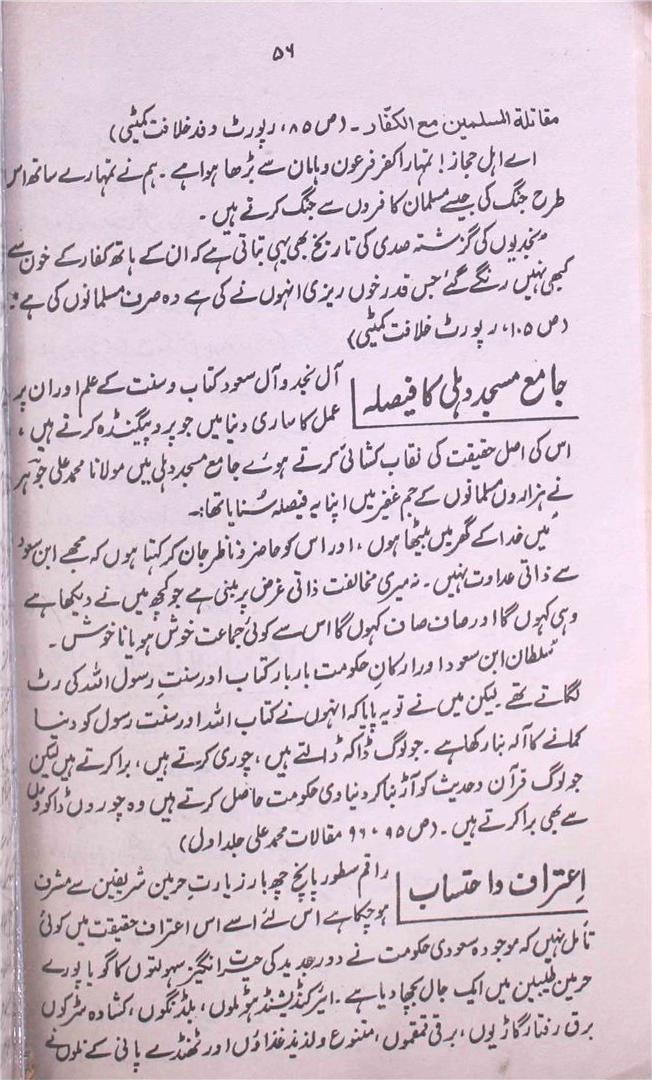 ۵۶
مقاتلة المسلمین مع الکفّار۔ (ص ۸۵، رپورٹ وفد خلافت کمیٹی)
اے اہل حجاز! تمہارا کفر فرعون و ہامان سے بڑھا ہوا ہے۔ ہم نے تمہارے ساتھ اس
طرح جنگ کی جیسے مسلمان کافروں سے جنگ کرتے ہیں۔
نجدیوں کی گزشتہ صدی کی تاریخ بھی یہی بتاتی ہے کہ ان کے ہاتھ کفار کے خون سے
کبھی نہیں رنگے گئے جس قدر خوں ریزی انہوں نے کی ہے وہ صرف مسلمانوں کی ہے۔
(ص ۱۰۵، رپورٹ خلافت کمیٹی)
جامع مسجد دہلی کا فیصلہ
آل نجد و آل سعود کتاب و سنت کے علم اور ان پر
عمل کا ساری دنیا میں جو پروپیگنڈہ کرتے ہیں،
اس کی اصل حقیقت کی نقاب کشائی کرتے ہوئے جامع مسجد دہلی میں مولانا محمد علی جوہر
نے ہزاروں مسلمانوں کے جم غفیر میں اپنا یہ فیصلہ سُنایا تھا:۔
میں خدا کے گھر میں بیٹھا ہوں، اور اس کو حاضر و ناظر جان کر کہتا ہوں کہ مجھے ابن سعود
سے ذاتی عداوت نہیں۔ نہ میری مخالفت ذاتی غرض پر مبنی ہے جو کچھ میں نے دیکھا ہے
وہی کہوں گا اور صاف صاف کہوں گا اس سے کوئی جماعت خوش ہو یا ناخوش۔
سُلطان ابن سعود اور ارکانِ حکومت بار بار کتاب اور سنتِ رسول اللہ کی رٹ
لگاتے تھے۔ لیکن میں نے تو یہ پایا کہ انہوں نے کتاب اللہ اور سنت رسول کو دنیا
کمانے کا آلہ بنا رکھا ہے۔ جو لوگ ڈاکہ ڈالتے ہیں، چوری کرتے ہیں، برا کرتے ہیں لیکن
جو لوگ قرآن و حدیث کو آڑ بنا کر دنیاوی حکومت حاصل کرتے ہیں وہ چوروں ڈاکوؤں
سے بھی برا کرتے ہیں۔ (ص ۹۵، ۹۶ مقالات محمد علی جلد اول)
اِعتراف و احتساب
راقم سطور پانچ چھ بار زیارتِ حرمین شریفین سے مشرف
ہو چکا ہے اس لئے اسے اس اعتراف حقیقت میں کوئی
تأمل نہیں کہ موجودہ سعودی حکومت نے دور جدید کی حیرت انگیز سہولتوں کا گویا پورے
حرمین طیبین میں ایک جال بچھا دیا ہے۔ ایئر کنڈیشنڈ ہوٹلوں، بلڈنگوں، کشادہ سڑکوں
برق رفتار گاڑیوں، برقی قمقموں، متنوع و لذیذ غذاؤں اور ٹھنڈے پانی کے نلوں نے